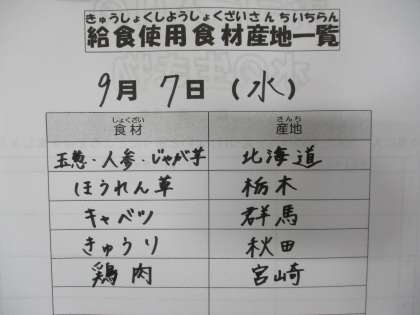 きゅうしょくしようしょくざいさんちいちらん
給食使用食材産地一覧
9月 7日 (水)
しょくざい さんち
食材 産地
玉葱・人参・じゃが芋 北海道
ほうれん草 栃木
キャベツ 群馬
きゅうり 秋田
鶏肉 宮崎